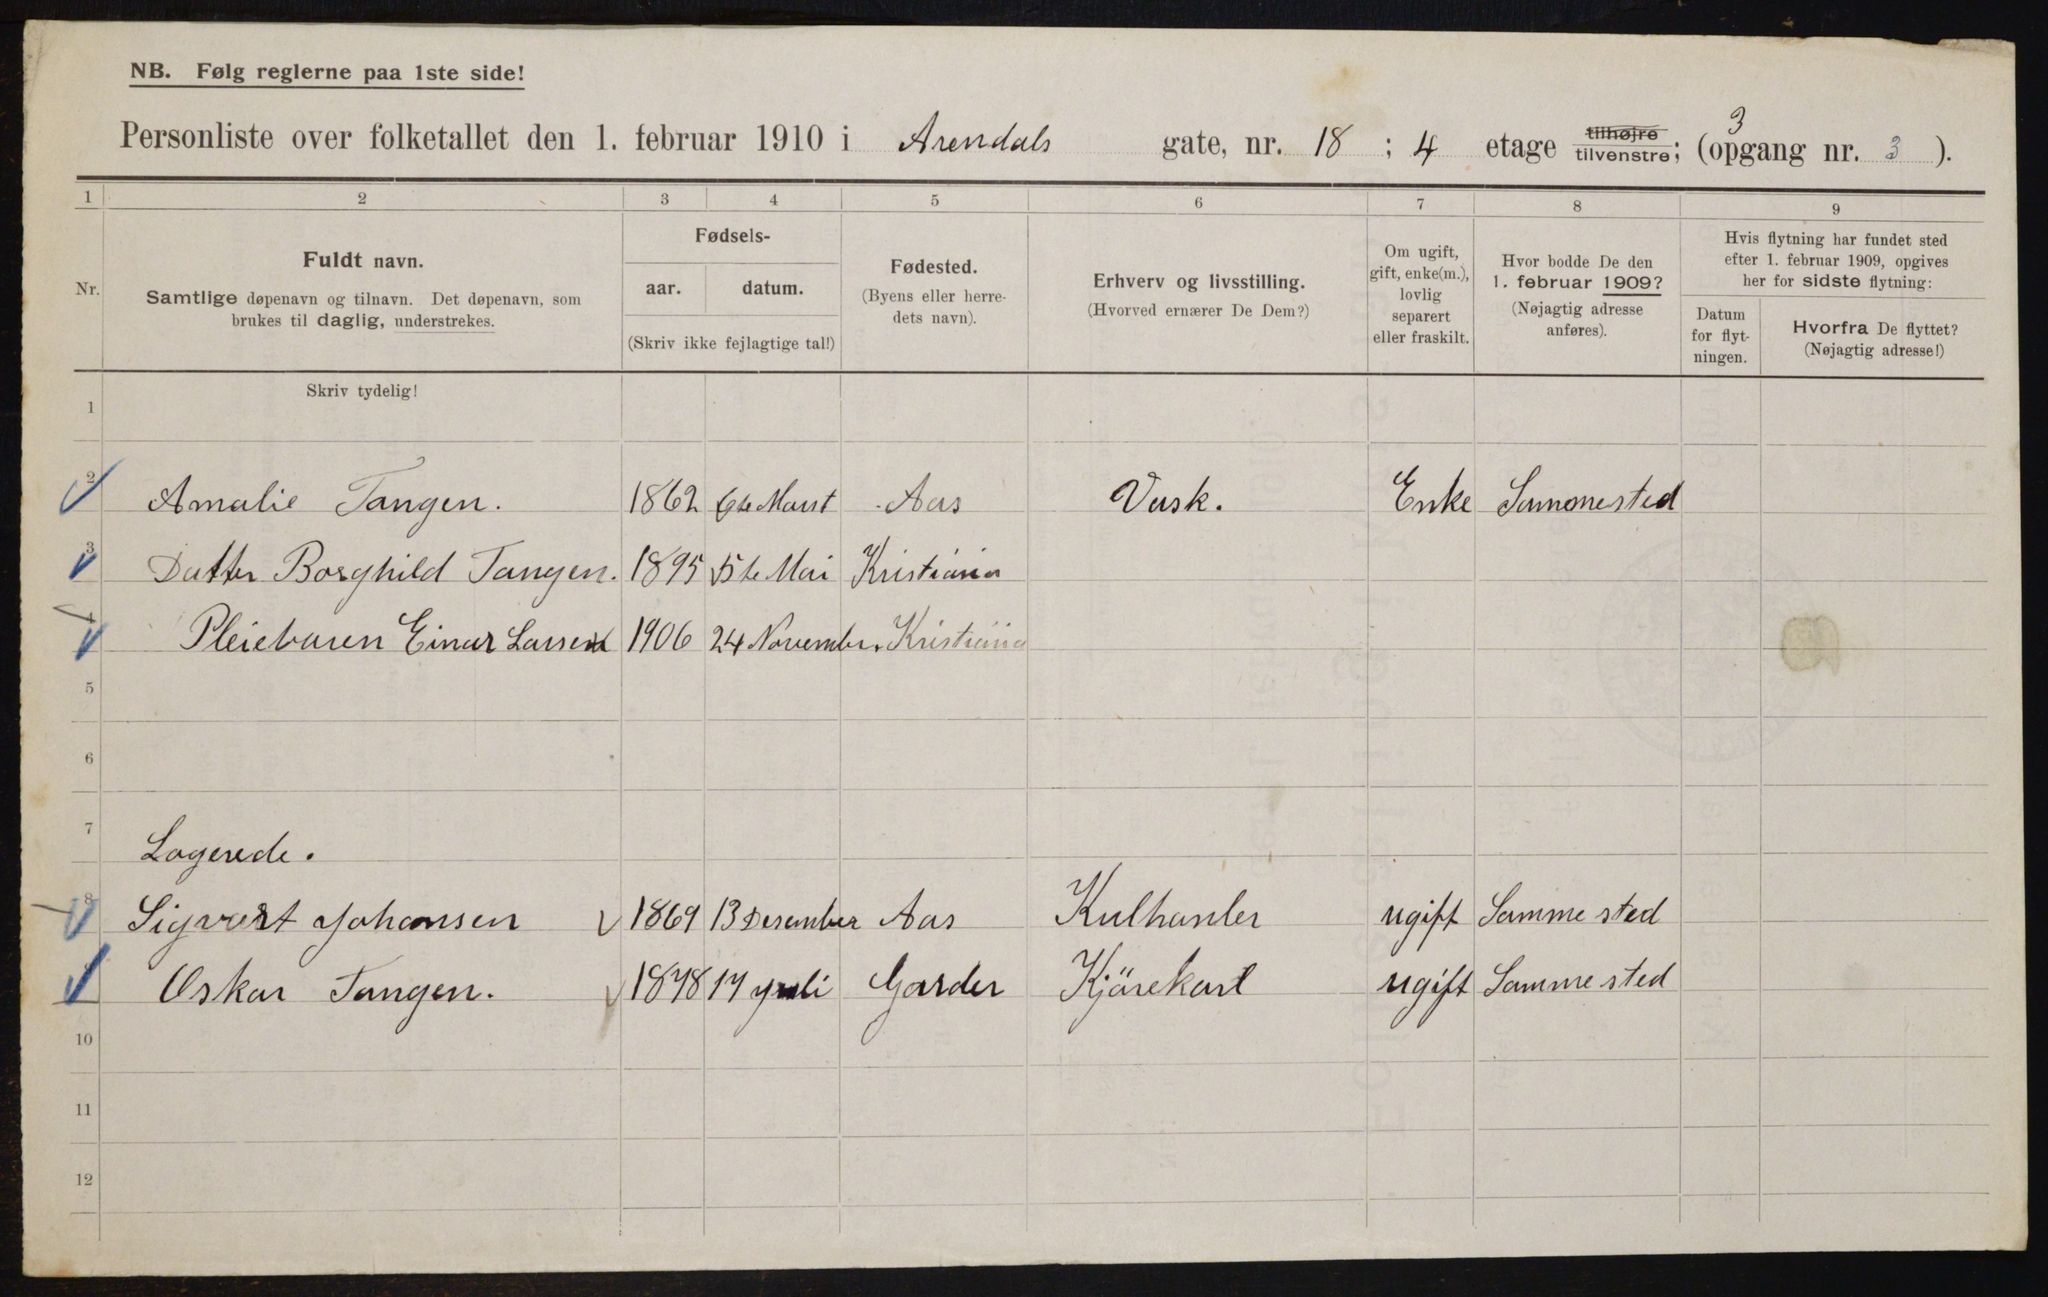 NB. Følg reglerne paa 1ste side!
3
Personliste over folketallet den 1. februar 1910 i Arendals gate, nr. 18 ; 4 etage tilhøjre tilvenstre; (opgang nr. 3 ).
1 2 3 4 5 6 7 8 9
Nr.
Fuldt navn.
Samtlige døpenavn og tilnavn. Det døpenavn, som
brukes til daglig, understrekes.
Fødsels-
aar. datum.
(Skriv ikke fejlagtige tal!)
Fødested.
(Byens eller herre-
dets navn).
Erhverv og livsstilling.
(Hvorved ernærer De Dem?)
Om ugift,
gift, enke(m.),
lovlig
separert
eller fraskilt.
Hvor bodde De den
1. februar 1909?
(Nøjagtig adresse
anføres).
Hvis flytning har fundet sted
efter 1. februar 1909, opgives
her for sidste flytning:
Datum
for flyt-
ningen.
Hvorfra De flyttet?
(Nøjagtig adresse!)
Skriv tydelig!
1
2 Amalie Tangen. 1862 6te Marst Aas Vask. Enke Sammested
3 Datter Borghild Tangen. 1895 15de Mai Kristiania
4 Pleiebaren Einar Larsen 1906 24 November. Kristiania
5
6
7 Logerede.
8 Sigvart Johansen 1869 13 Desember Aas Kulhanler ugift Samme sted
9 Oskar Tangen. 1878 17 yuli Garder Kjörekarl ugift Samme sted
10
11
12